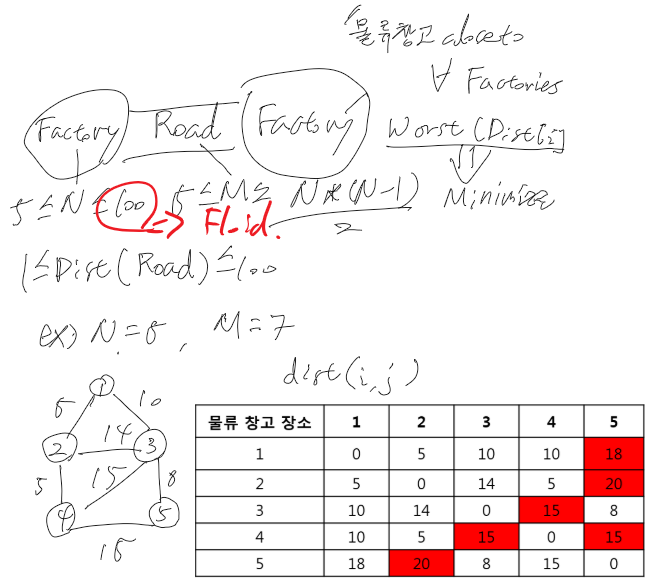 물류창고
∀ Factories
Factory Road Factory
Worst (Dist[i]
Minimize
5 ≤ N ≤ 100 => Floid.
5 ≤ M ≤ N*(N-1) / 2
1 ≤ Dist(Road) ≤ 100
ex) N=5, M=7
dist(i,j)
1
5 10
2 14 3
5 15 8
4 5
15
물류 창고 장소 1 2 3 4 5
1 0 5 10 10 18
2 5 0 14 5 20
3 10 14 0 15 8
4 10 5 15 0 15
5 18 20 8 15 0